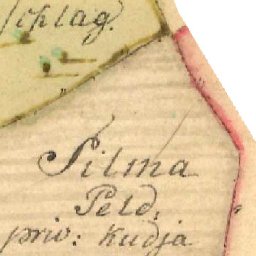 Schlag.
Silma
Peld.
priv: Kudja